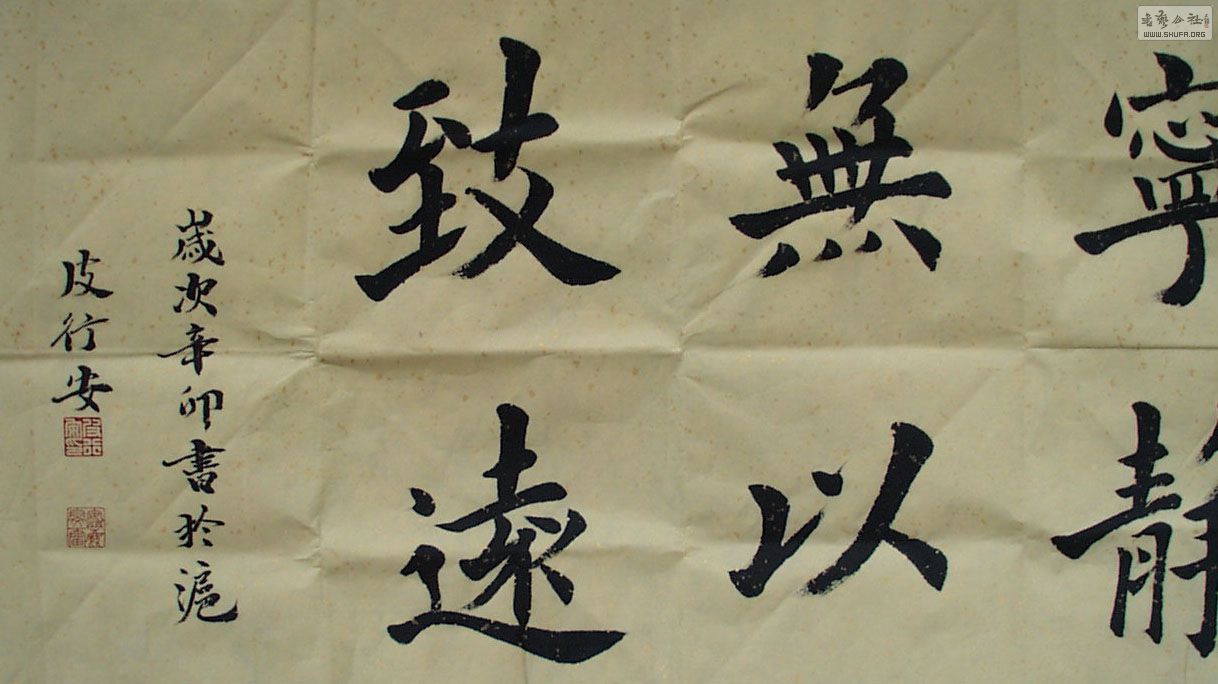 寧靜
無以
致遠
歲次辛卯書於滬
皮行安
書藝公社
WWW.SHUFA.ORG